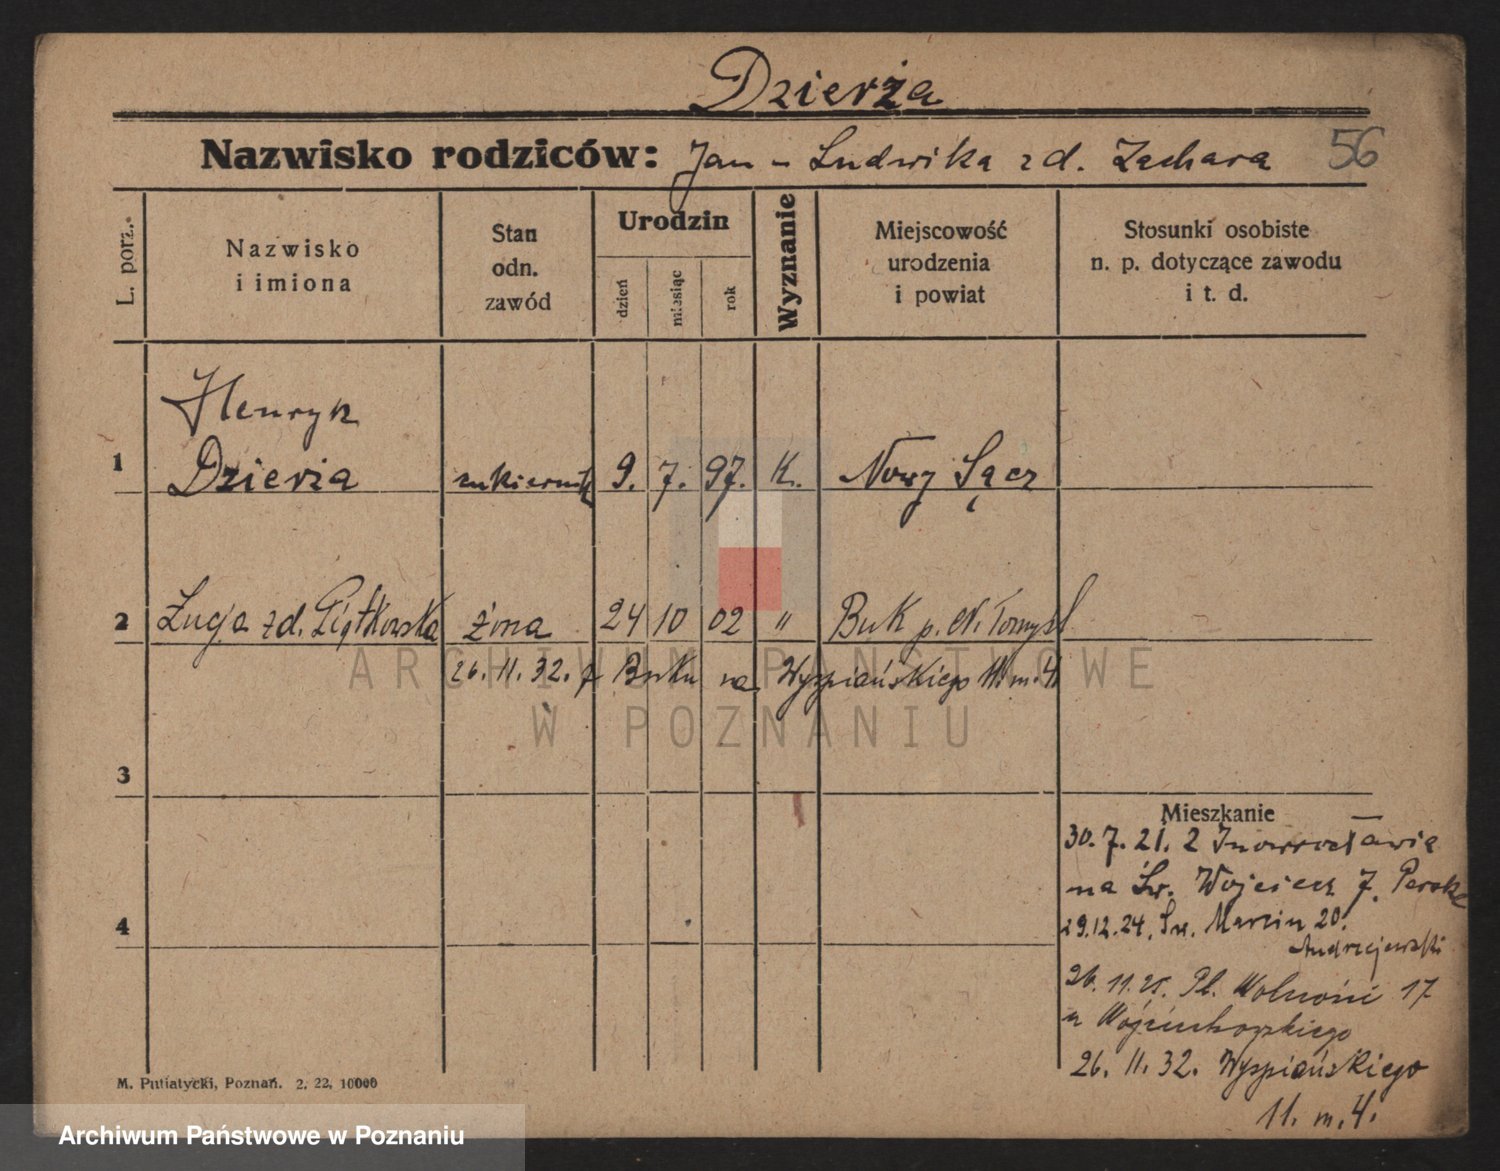 Dzierża
Nazwisko rodziców: Jan - Ludwika z d. Zachara 56
L. porz.
Nazwisko
i imiona
Stan
odn.
zawód
Urodzin
dzień
miesiąc
rok
Wyznanie
Miejscowość
urodzenia
i powiat
Stosunki osobiste
n. p. dotyczące zawodu
i t. d.
Henryk
1 Dzierża cukiernik 9. 7. 97. K. Nowy Sącz
2 zd. Piątkowska żona 24 10 02 " Buk p. N. Tomyśl
26. 11. 32. z Buku na Wyspiańskiego 11. m. 4.
ARCHIWUM PAŃSTWOWE
W POZNANIU
3
4
Mieszkanie
30. 7. 21. z Inowrocławia
na Św. Wojciech 7.
29.12.24. Św. Marcin 20.
Andrzejewski
26. 11. 25. Pl. Wolności 17
u Wojciechowskiego
26. 11. 32. Wyspiańskiego
11. m. 4.
M. Putiatycki, Poznań. 2. 22. 10000
Archiwum Państwowe w Poznaniu